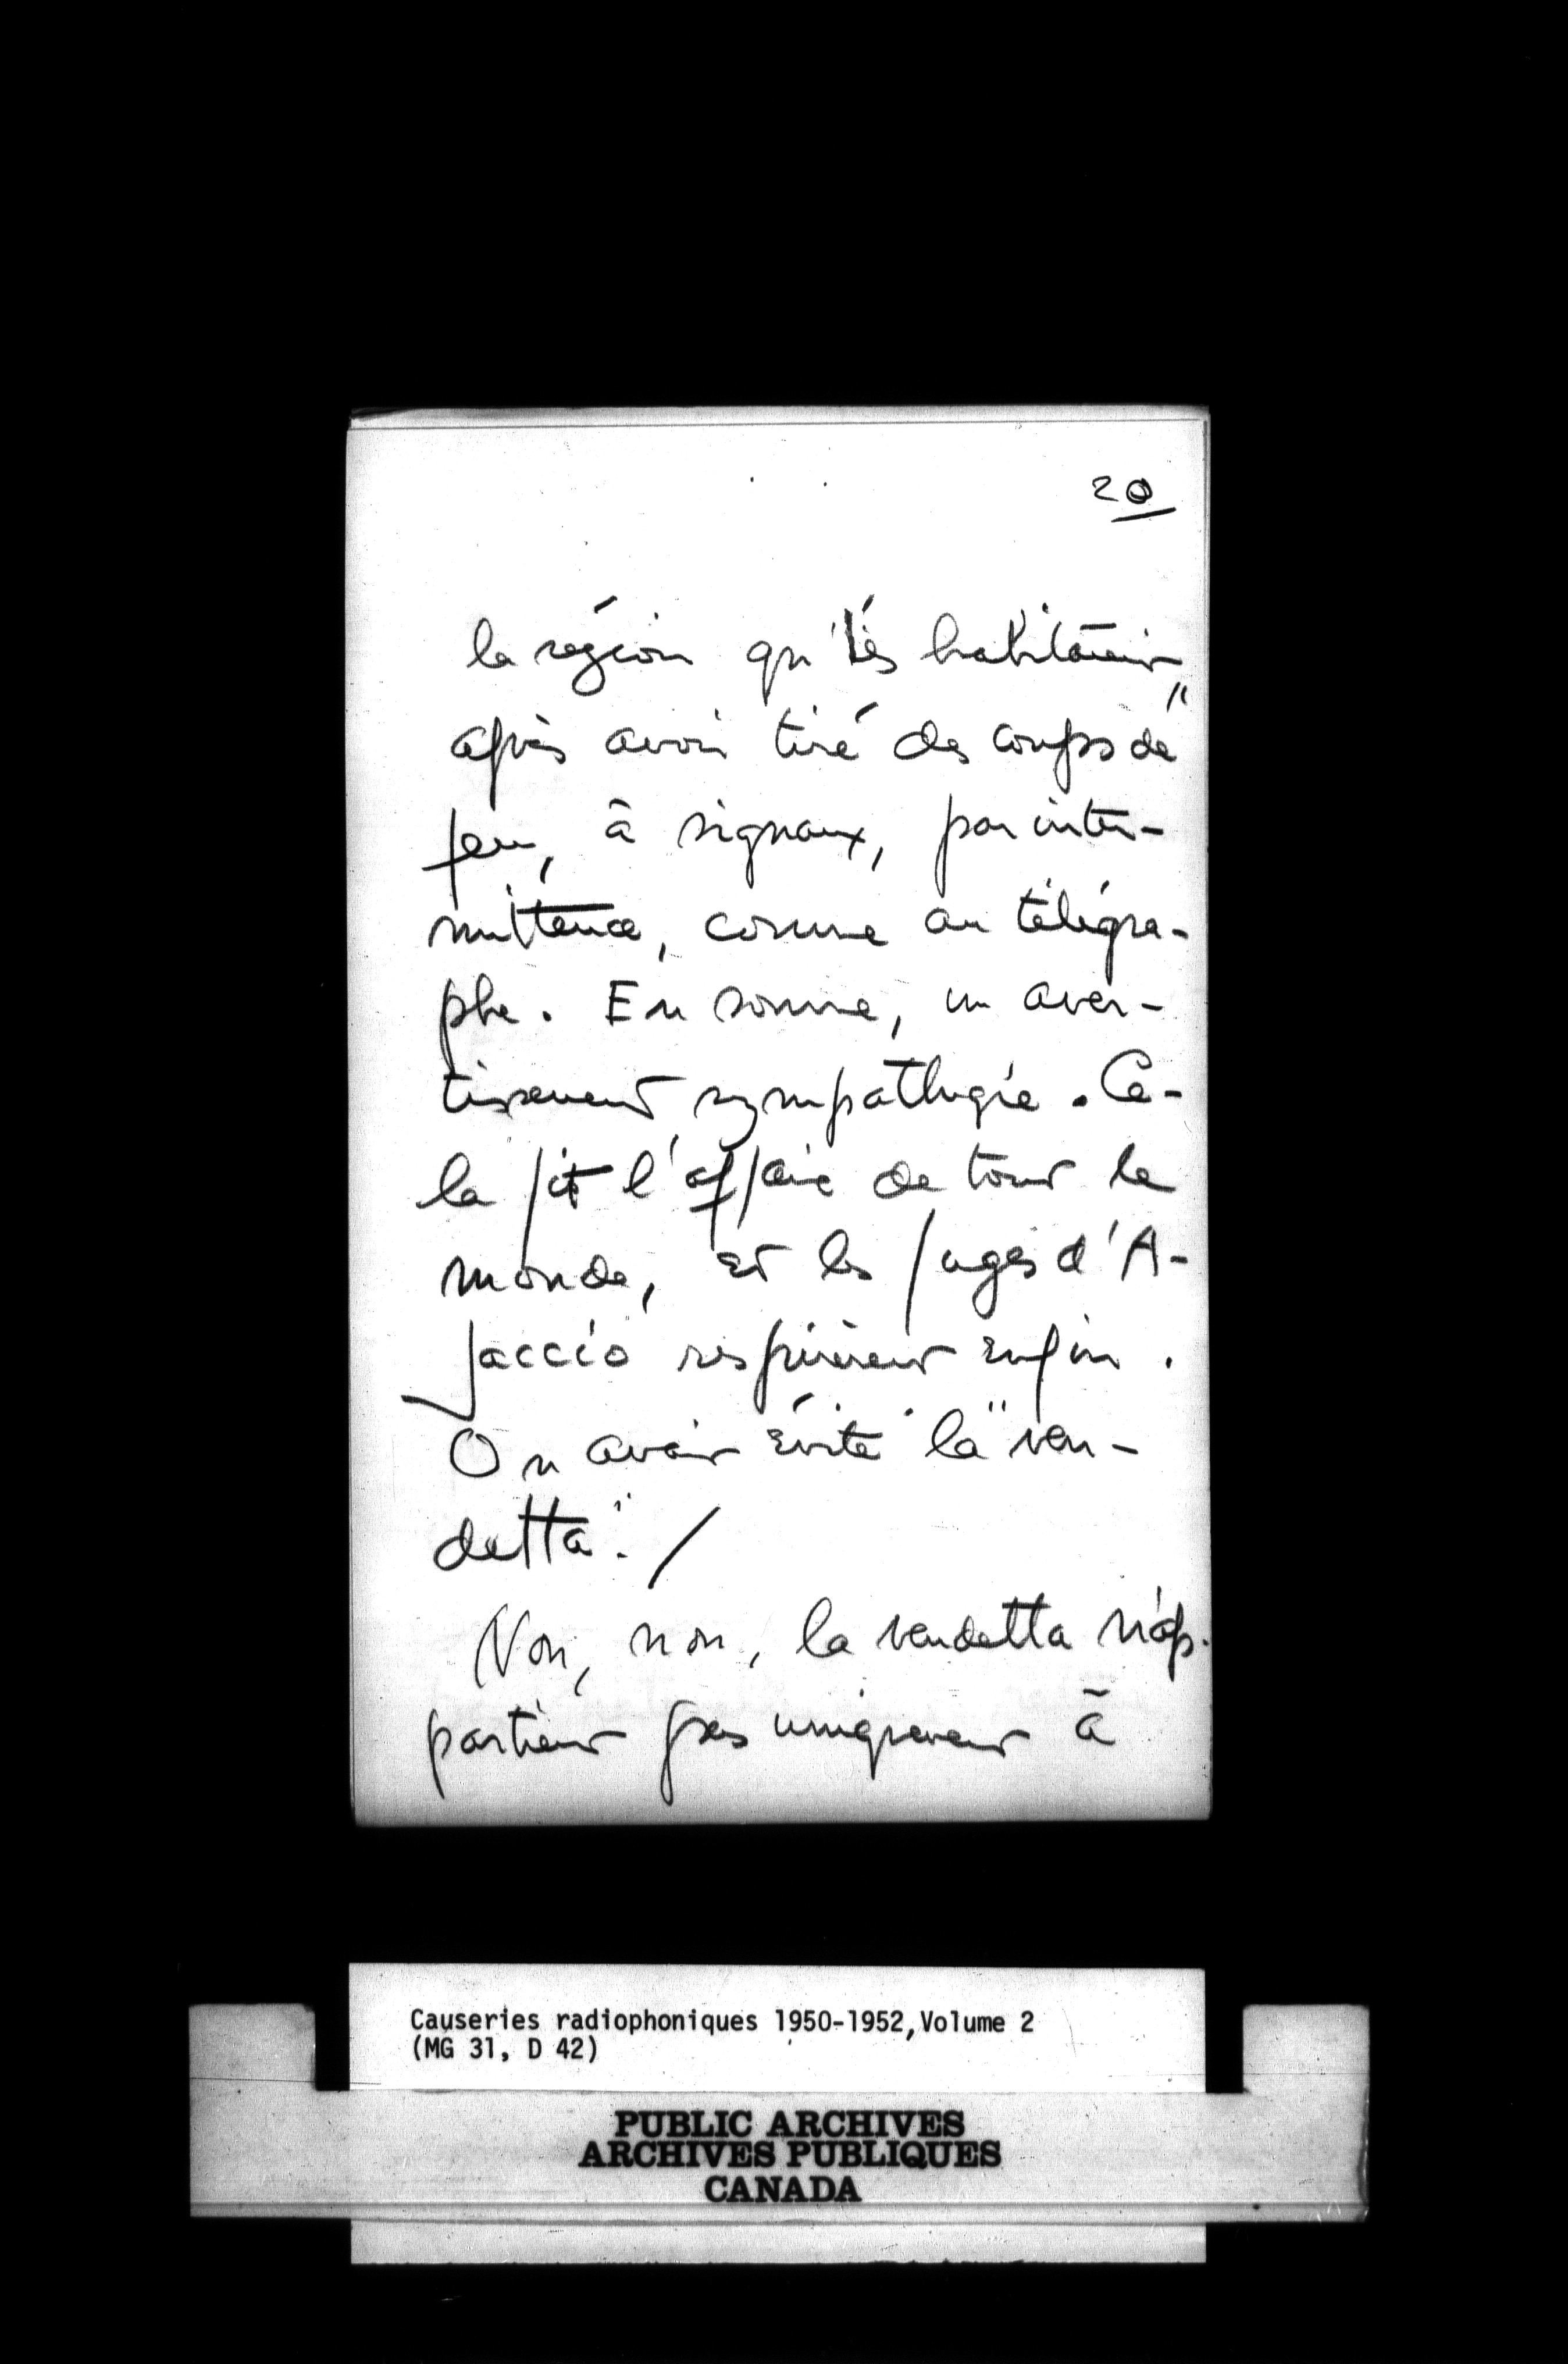 20
la région qu'ils habitaient,
après avoir tiré des coups de
feu, à signaux, par inter-
mittence, comme au télégra-
phe. En somme, un aver-
tissement sympathique. Ce-
la fit l'affaire de tout le
monde, et les juges d'A-
jaccio respirèrent enfin.
On avait évité la "ven-
detta". /
Non, non, la vendetta n'ap-
partient pas uniquement à
Causeries radiophoniques 1950-1952, Volume 2
(MG 31, D 42)
PUBLIC ARCHIVES
ARCHIVES PUBLIQUES
CANADA